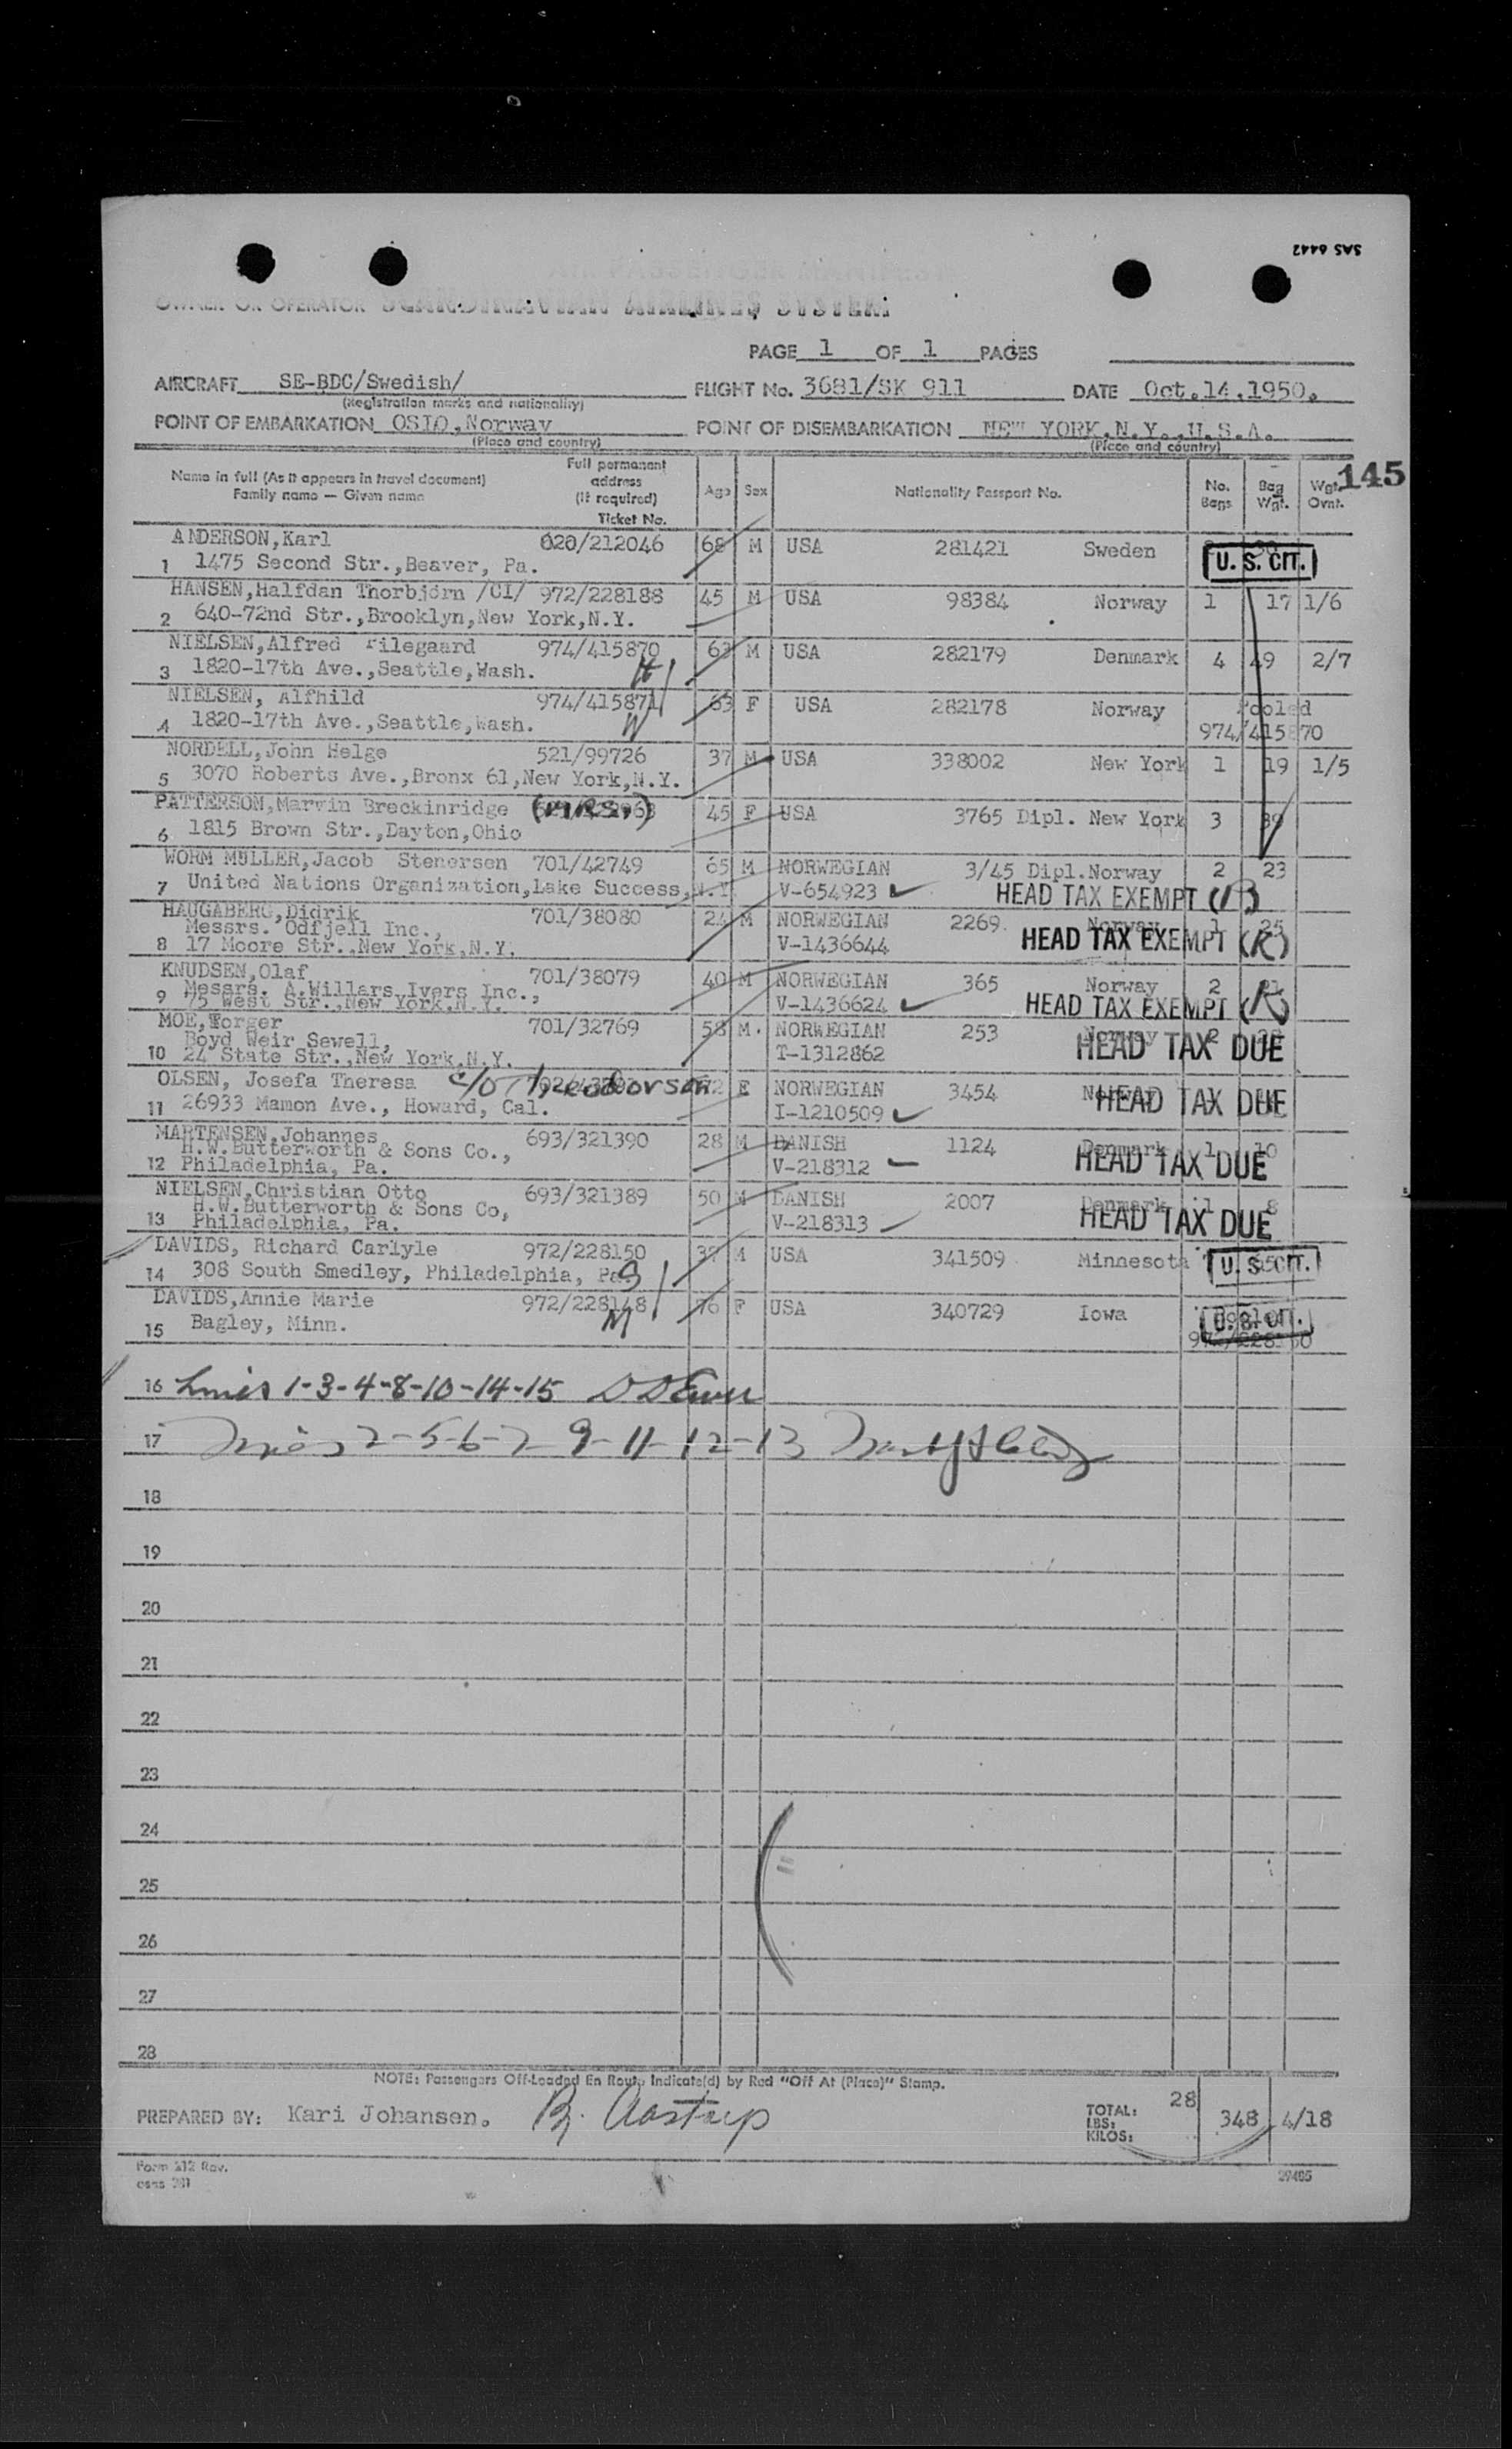 SAS 6442
AIR PASSENGER MANIFEST
OWNER OR OPERATOR SCANDINAVIAN AIRLINES SYSTEM
PAGE 1 OF 1 PAGES
AIRCRAFT SE-BDC/Swedish/ FLIGHT No. 3681/SK 911 DATE Oct.14.1950.
(Registration marks and nationality)
POINT OF EMBARKATION OSLO,Norway POINT OF DISEMBARKATION NEW YORK,N.Y.,U.S.A.
(Place and country) (Place and country)
Name in full (As it appears in travel document) Family name — Given name Full permanent address (If required) Ticket No. Age Sex Nationality Passport No. No. Bags Bag Wgt. Wgt. Ovnt. 145
ANDERSON,Karl 020/212046 68 M USA 281421 Sweden
1 1475 Second Str.,Beaver, Pa. U. S. CIT.
HANSEN,Halfdan Thorbjörn /CI/ 972/228188 45 M USA 98384 Norway 1 17 1/6
2 640-72nd Str.,Brooklyn,New York,N.Y.
NIELSEN,Alfred Filegaard 974/415870 63 M USA 282179 Denmark 4 49 2/7
3 1820-17th Ave.,Seattle,Wash. H
NIELSEN, Alfhild 974/415871 63 F USA 282178 Norway Pooled
4 1820-17th Ave.,Seattle,Wash. W 974/415870
NORDELL,John Helge 521/99726 37 M USA 338002 New York 1 19 1/5
5 3070 Roberts Ave.,Bronx 61,New York,N.Y.
PATTERSON,Marvin Breckinridge (MRS.) 45 F USA 3765 Dipl. New York 3 39
6 1815 Brown Str.,Dayton,Ohio
WORM MULLER,Jacob Stenersen 701/42749 65 M NORWEGIAN 3/45 Dipl.Norway 2 23
7 United Nations Organization,Lake Success,N.Y. V-654923 HEAD TAX EXEMPT
HAUGABERG,Didrik 701/38080 24 M NORWEGIAN 2269 Norway 1 25
Messrs. Odfjell Inc.,
8 17 Moore Str.,New York,N.Y. V-1436644 HEAD TAX EXEMPT (R)
KNUDSEN,Olaf 701/38079 40 M NORWEGIAN 365 Norway 2 21
Messrs. A.Willars Ivers Inc.,
9 75 West Str.,New York,N.Y. V-1436624 HEAD TAX EXEMPT (R)
MOE,Torger 701/32769 58 M NORWEGIAN 253 Norway 2
Boyd Weir Sewell,
10 24 State Str.,New York,N.Y. T-1312862 HEAD TAX DUE
OLSEN, Josefa Theresa c/o Theodorson 72 F NORWEGIAN 3454
11 26933 Mamon Ave., Howard, Cal. I-1210509 HEAD TAX DUE
MARTENSEN,Johannes 693/321390 28 M DANISH 1124 Denmark 1 10
H.W.Butterworth & Sons Co.,
12 Philadelphia, Pa. V-218312 HEAD TAX DUE
NIELSEN,Christian Otto 693/321389 50 M DANISH 2007 Denmark 1 8
H.W.Butterworth & Sons Co,
13 Philadelphia, Pa. V-218313 HEAD TAX DUE
DAVIDS, Richard Carlyle 972/228150 37 M USA 341509 Minnesota U. S. CIT.
14 308 South Smedley, Philadelphia, Pa. S
DAVIDS,Annie Marie 972/228148 76 F USA 340729 Iowa U. S. CIT.
15 Bagley, Minn. M
16 Lines 1-3-4-8-10-14-15
17 Lines 2-5-6-7-9-11-12-13
18
19
20
21
22
23
24
25
26
27
28
NOTE: Passengers Off-Loaded En Route Indicate(d) by Red "Off At (Place)" Stamp.
PREPARED BY: Kari Johansen. TOTAL: 28 348 4/18
LBS:
KILOS:
Form 212 Rev.
29485